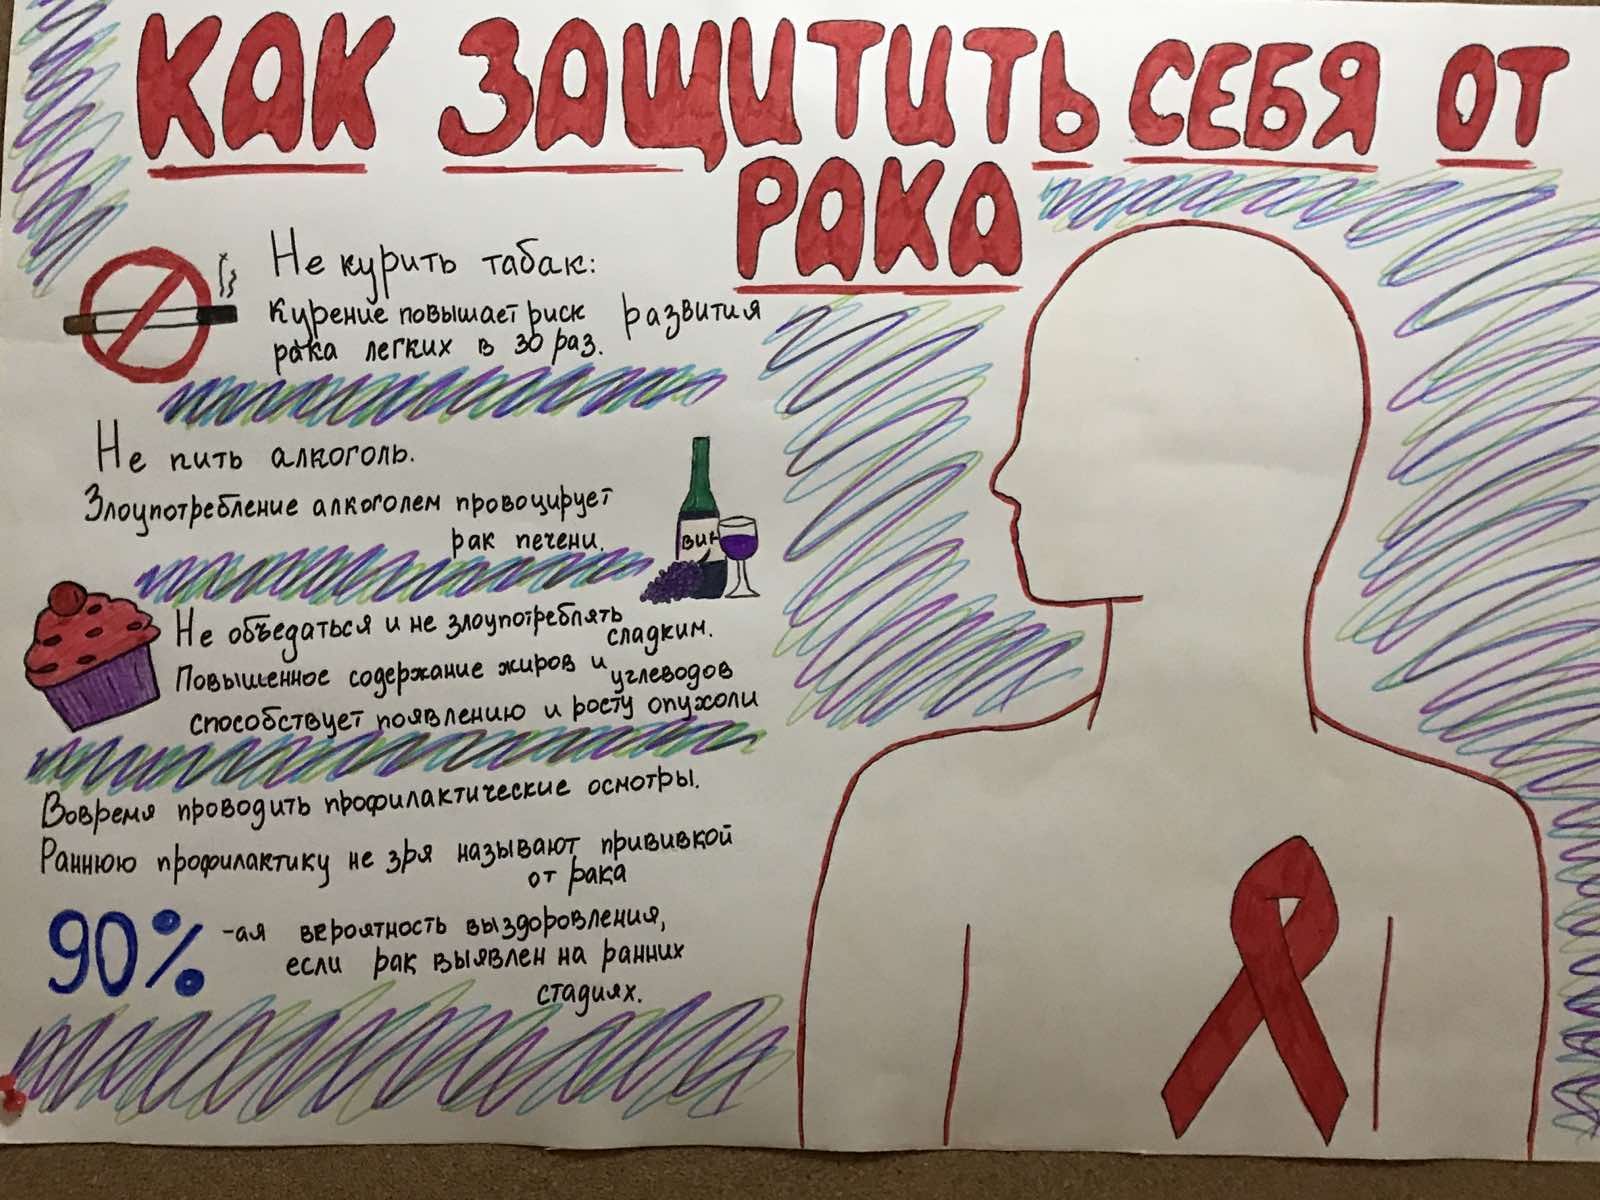 КАК ЗАЩИТИТЬ СЕБЯ ОТ
РАКА
Не курить табак:
курение повышает риск развития
рака легких в 30 раз.
Не пить алкоголь.
Злоупотребление алкоголем провоцирует
рак печени.
ВИН
Не объедаться и не злоупотреблять
сладким.
Повышенное содержание жиров и углеводов
способствует появлению и росту опухоли
Вовремя проводить профилактические осмотры.
Раннюю профилактику не зря называют прививкой
от рака
90% -ая вероятность выздоровления,
если рак выявлен на ранних
стадиях.